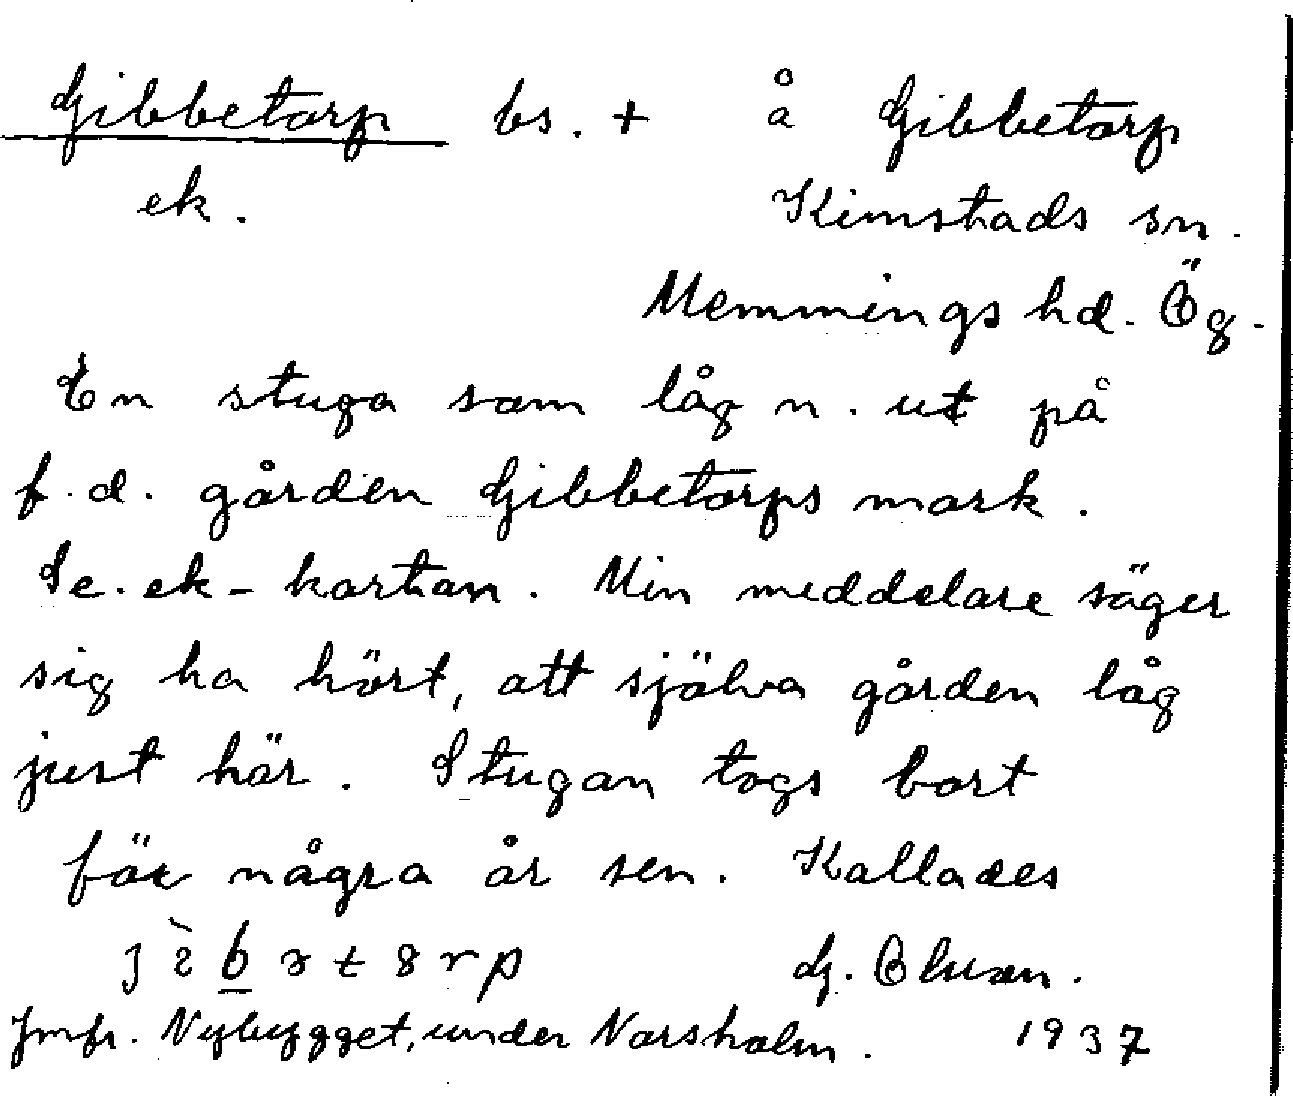 Gibbetorp bs. + å Gibbetorp
ek. Kimstads sn.
Memmings hd. Ög.
En stuga som låg n. ut på
f.d. gården Gibbetorps mark.
Se. ek-kartan. Min meddelare säger
sig ha hört, att själva gården låg
just här. Stugan togs bort
för några år sen. Kallades
G.
Jmfr. Nybygget, under Norsholm. 1937